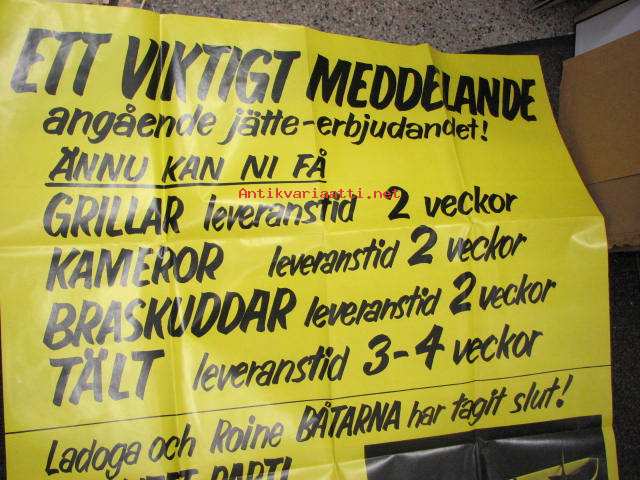 ETT VIKTIGT MEDDELANDE
angående jätte-erbjudandet!
ÄNNU KAN NI FÅ
Antikvariaatti.net
GRILLAR leveranstid 2 veckor
KAMEROR leveranstid 2 veckor
BRASKUDDAR leveranstid 2 veckor
TÄLT leveranstid 3-4 veckor
Ladoga och Roine BÅTARNA har tagit slut!
PARTI